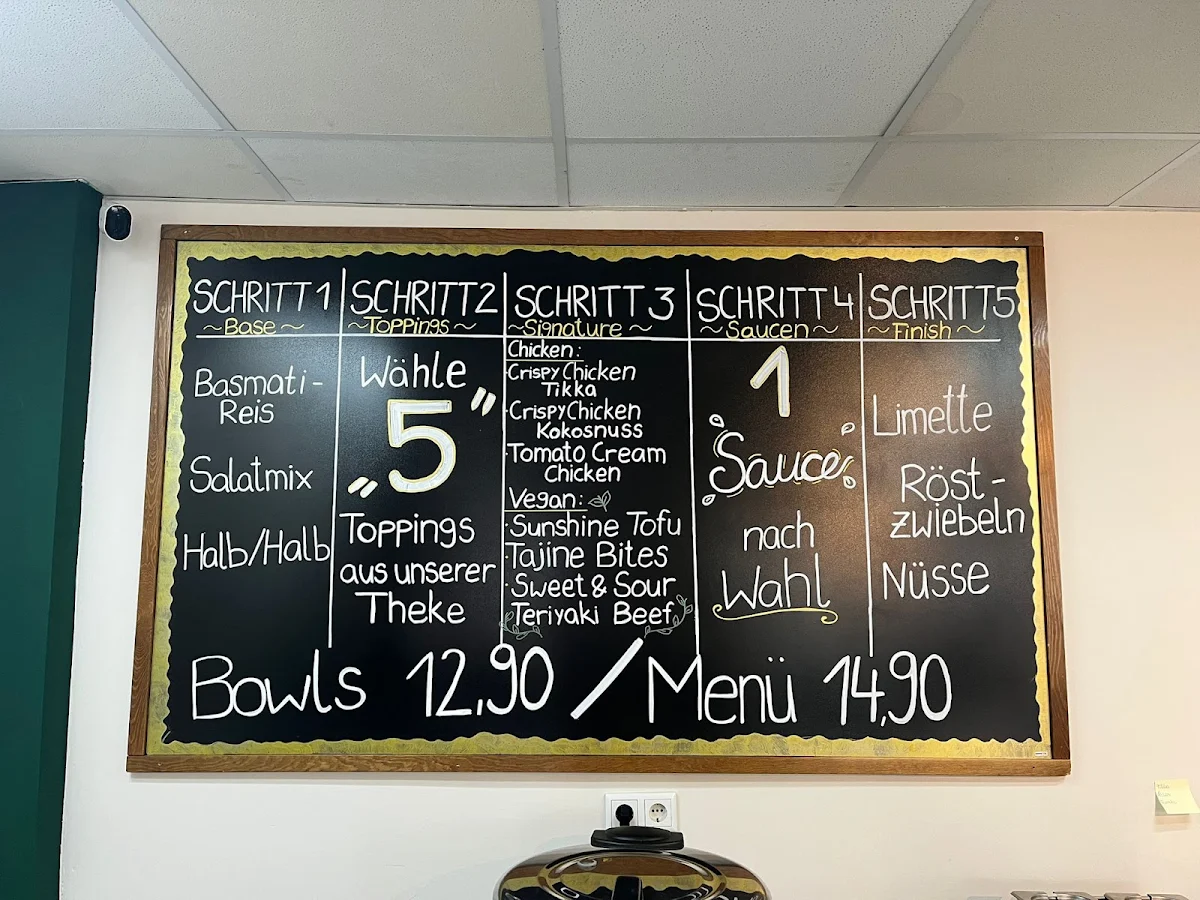 SCHRITT 1
~ Base ~
Basmati-
Reis
Salatmix
Halb/Halb
SCHRITT 2
~ Toppings ~
Wähle
„5”
Toppings
aus unserer
Theke
SCHRITT 3
~ Signature ~
Chicken:
· Crispy Chicken
Tikka
· Crispy Chicken
Kokosnuss
· Tomato Cream
Chicken
Vegan:
· Sunshine Tofu
· Tajine Bites
· Sweet & Sour
Teriyaki Beef
SCHRITT 4
~ Saucen ~
1
Sauce
nach
Wahl
SCHRITT 5
~ Finish ~
Limette
Röst-
zwiebeln
Nüsse
Bowls 12,90 / Menü 14,90